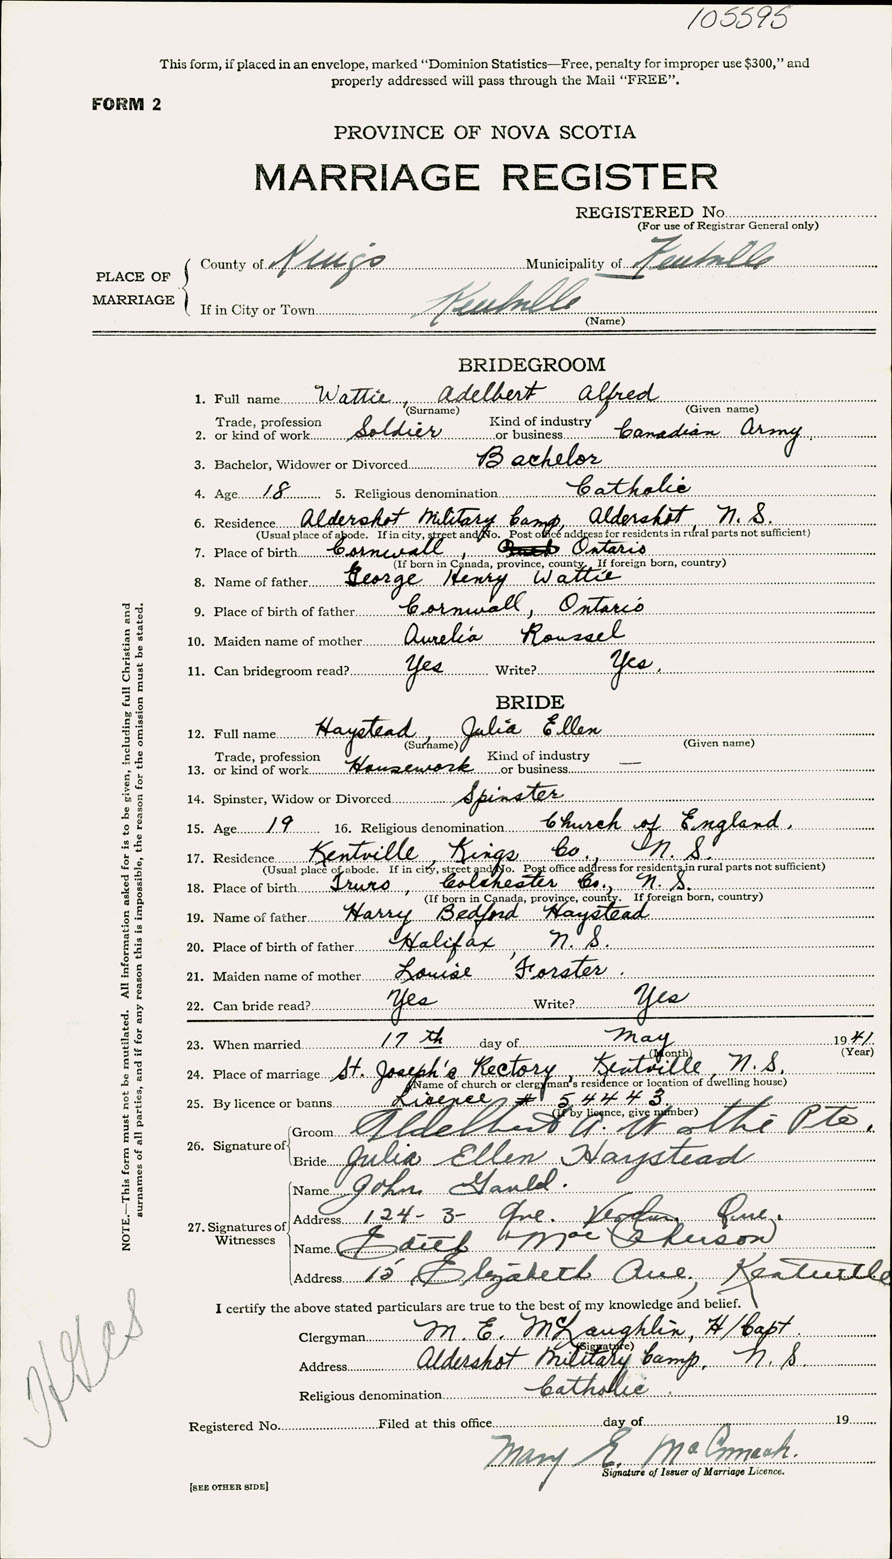 105595
This form, if placed in an envelope, marked "Dominion Statistics—Free, penalty for improper use $300," and
properly addressed will pass through the Mail "FREE".
FORM 2
PROVINCE OF NOVA SCOTIA
MARRIAGE REGISTER
REGISTERED No.
(For use of Registrar General only)
PLACE OF MARRIAGE
County of Kings Municipality of Kentville
If in City or Town Kentville
(Name)
BRIDEGROOM
1. Full name Wattie, Adelbert Alfred
(Surname) (Given name)
2. Trade, profession or kind of work Soldier Kind of industry or business Canadian Army.
3. Bachelor, Widower or Divorced Bachelor
4. Age 18 5. Religious denomination Catholic
6. Residence Aldershot Military Camp, Aldershot, N.S.
(Usual place of abode. If in city, street and No. Post office address for residents in rural parts not sufficient)
7. Place of birth Cornwall, Ontario
(If born in Canada, province, county. If foreign born, country)
8. Name of father George Henry Wattie
9. Place of birth of father Cornwall, Ontario
10. Maiden name of mother Aurelia Roussel
11. Can bridegroom read? Yes Write? Yes.
BRIDE
12. Full name Haystead, Julia Ellen
(Surname) (Given name)
13. Trade, profession or kind of work Housework Kind of industry or business —
14. Spinster, Widow or Divorced Spinster
15. Age 19 16. Religious denomination Church of England.
17. Residence Kentville, Kings Co., N.S.
(Usual place of abode. If in city, street and No. Post office address for residents in rural parts not sufficient)
18. Place of birth Truro, Colchester Co., N.S.
(If born in Canada, province, county. If foreign born, country)
19. Name of father Harry Bedford Haystead
20. Place of birth of father Halifax, N.S.
21. Maiden name of mother Louise Forster.
22. Can bride read? Yes Write? Yes
23. When married 17th day of May 1941
(Month) (Year)
24. Place of marriage St. Joseph's Rectory, Kentville, N.S.
(Name of church or clergyman's residence or location of dwelling house)
25. By licence or banns Licence # 54443
(If by licence, give number)
26. Signature of
Groom Adelbert A. Wattie Pte.
Bride Julia Ellen Haystead
27. Signatures of Witnesses
Name John Gauld.
Address 124-3- Ave. Verdun Que.
Name Edith MacPherson
Address 15 Elizabeth Ave, Kentville
I certify the above stated particulars are true to the best of my knowledge and belief.
Clergyman M. E. McLaughlin, H/Capt.
(Signature)
Address Aldershot Military Camp, N.S.
Religious denomination Catholic.
Registered No. Filed at this office day of 19
Mary E. McCormack.
Signature of Issuer of Marriage Licence.
[SEE OTHER SIDE]
NOTE.—This form must not be mutilated. All Information asked for is to be given, including full Christian and
surnames of all parties, and if for any reason this is impossible, the reason for the omission must be stated.